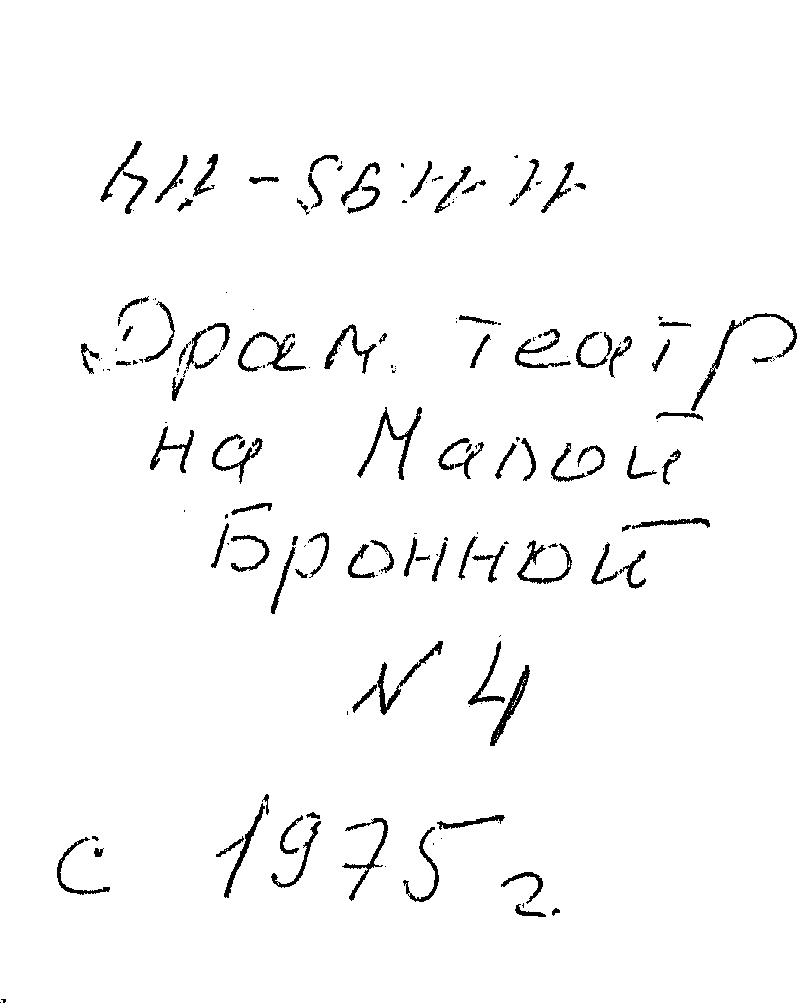 Драм. театр
на Малой
Бронной
N 4
с 1975 г.